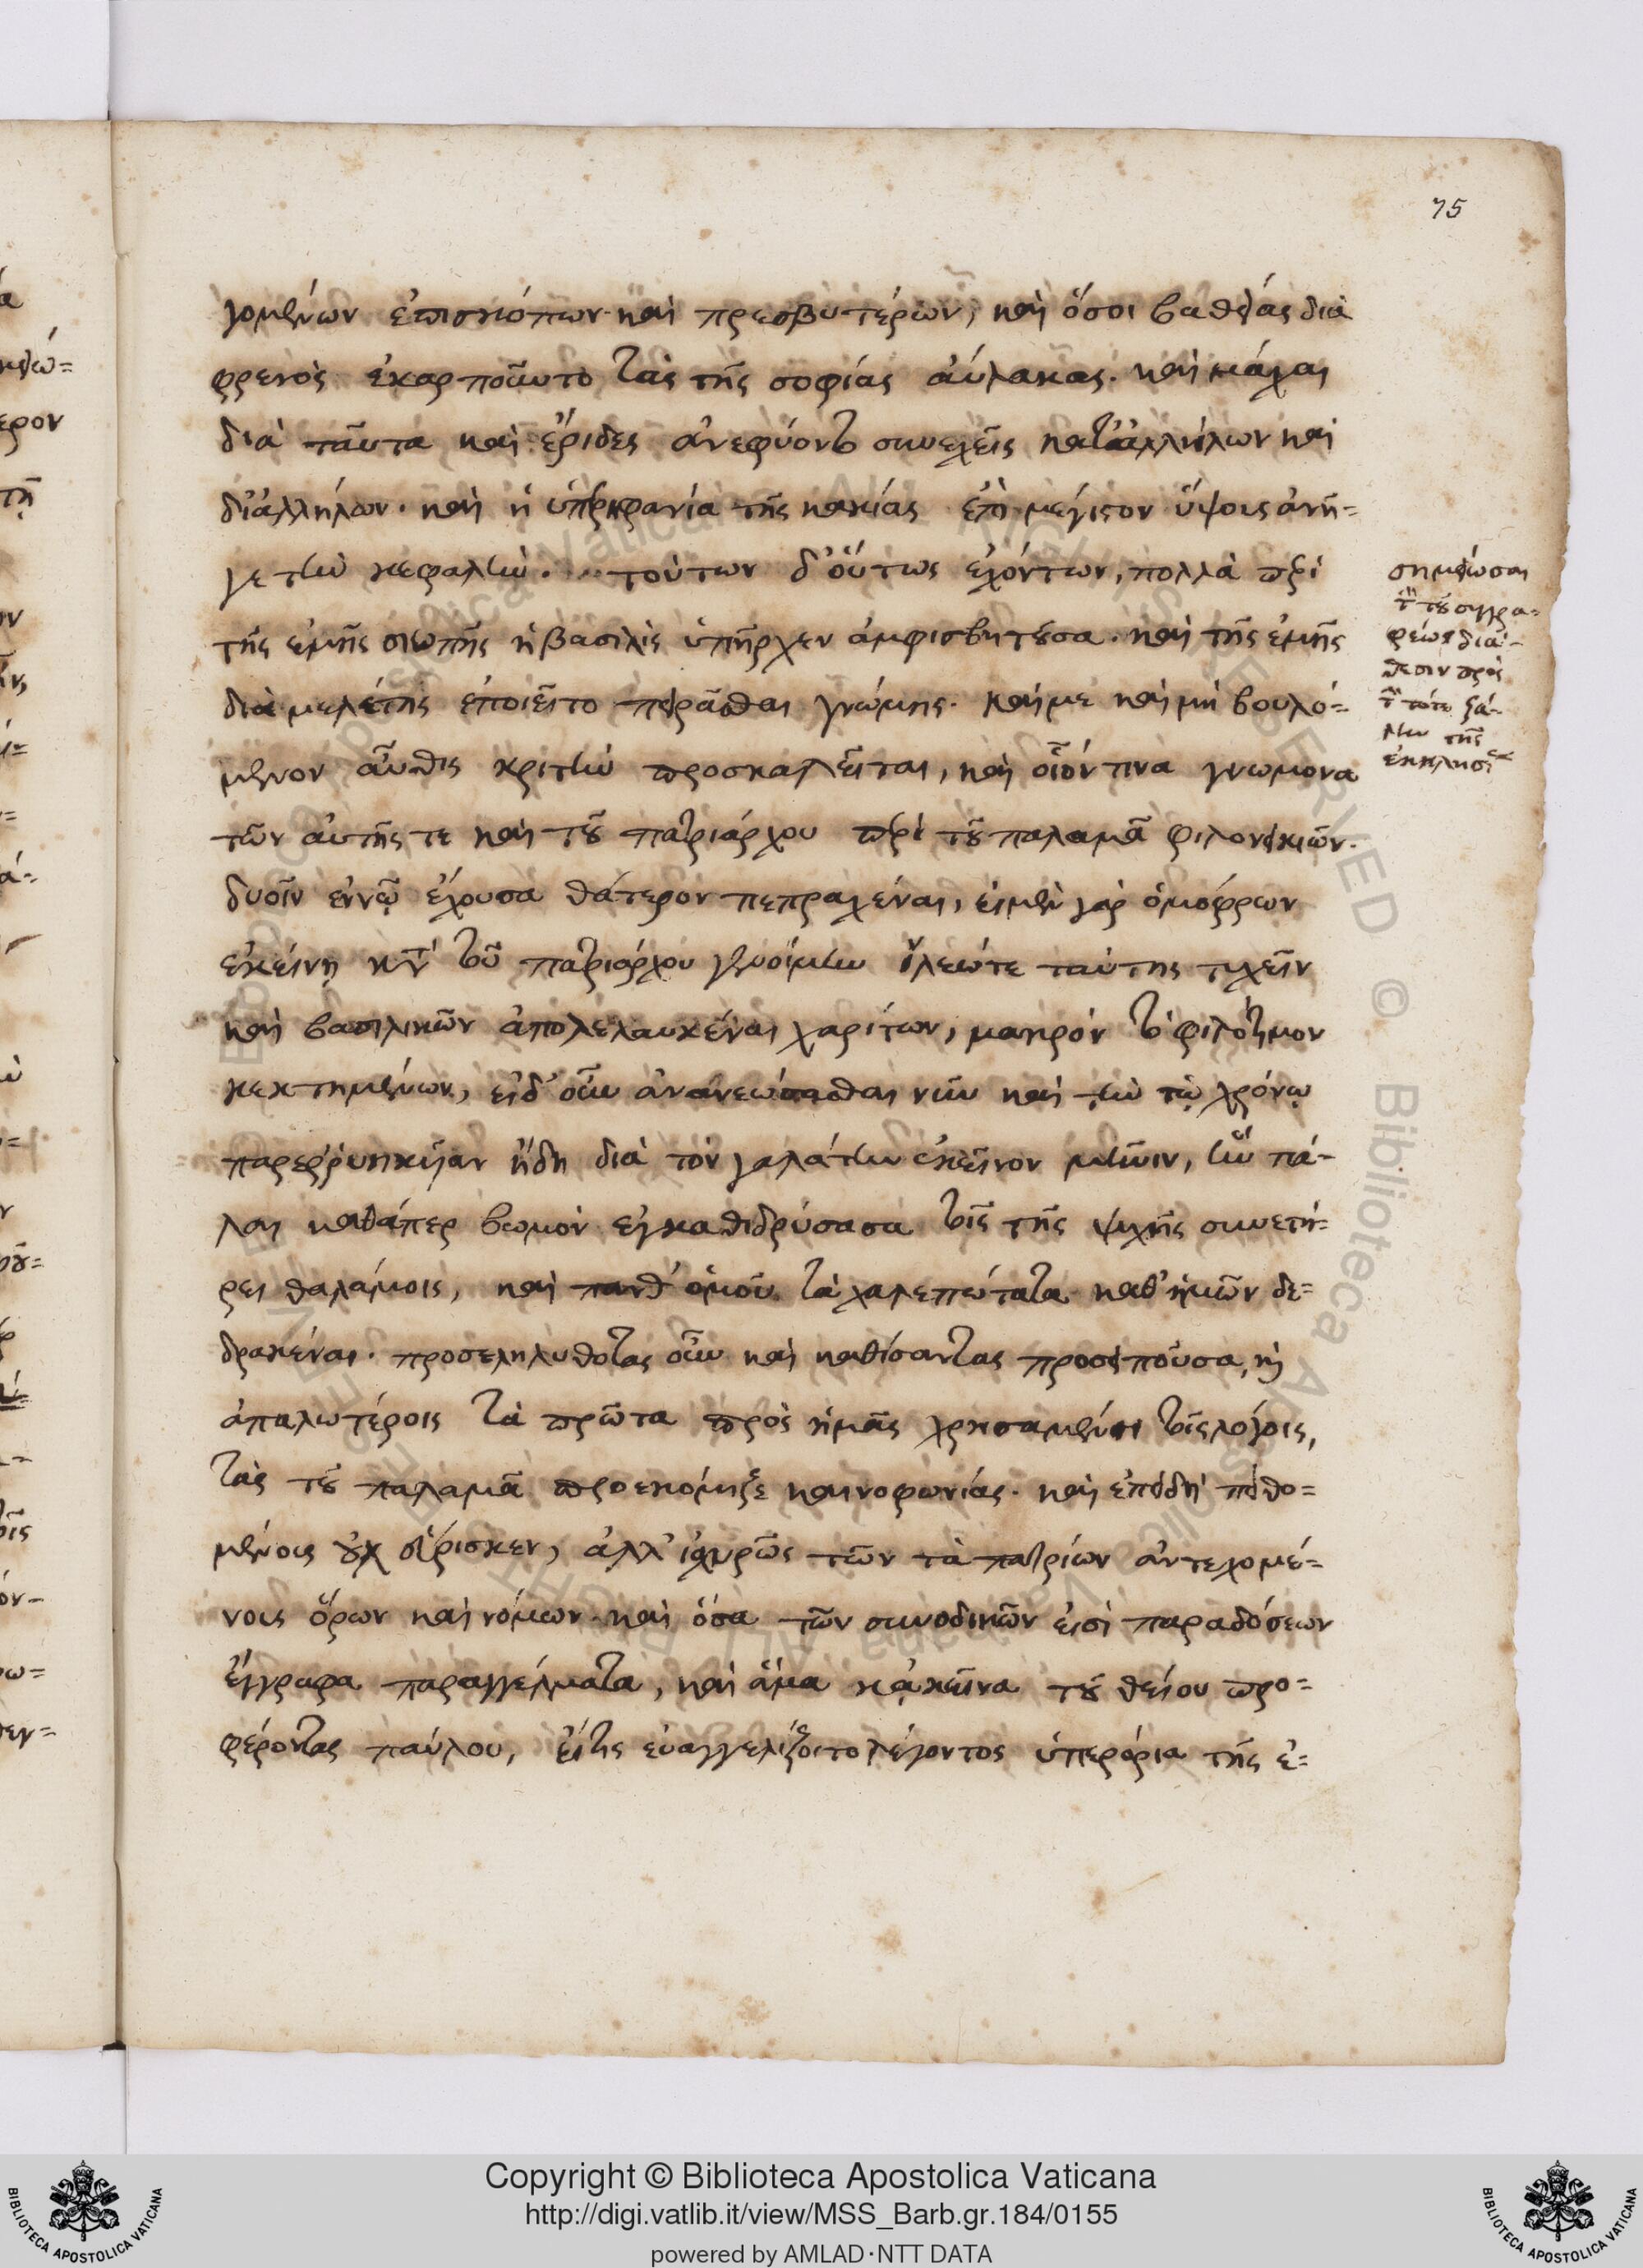 75
γομένων ἐπισκόπων καὶ πρεσβυτέρων, καὶ ὅσοι βαθείας διὰ
φρενὸς ἐκαρποῦντο τὰς τῆς σοφίας αὔλακας. καὶ μάχαι
διὰ ταῦτα καὶ ἔριδες ἀνεφύοντο συνεχεῖς κατ' ἀλλήλων καὶ
δι' ἀλλήλων. καὶ ἡ ὑπερηφανία τῆς κακίας ἐπὶ μέγιστον ὕψους ἀνῆ=
γε τὴν κεφαλήν. τούτων δ' οὕτως ἐχόντων, πολλὰ περὶ
τῆς ἐμῆς σιωπῆς ἡ βασιλὶς ὑπῆρχεν ἀμφισβητοῦσα. καὶ τῆς ἐμῆς
διὰ μελέτης ἐποιεῖτο πειρᾶσθαι γνώμης. καί με καὶ μὴ βουλό=
μενον αὖθις κριτὴν προσκαλεῖται, καὶ οἷόν τινα γνώμονα
τῶν αὐτῆς τε καὶ τοῦ πατριάρχου περὶ τοῦ παλαμᾶ φιλονεικιῶν.
δυοῖν ἐν νῷ ἔχουσα θάτερον πεπραχέναι, εἰ μὲν γὰρ ὁμόφρων
ἐκείνῃ κατὰ τοῦ πατριάρχου γενοίμην ἵλεώ τε ταύτης τυχεῖν
καὶ βασιλικῶν ἀπολελαυκέναι χαρίτων, μακρὸν τὸ φιλότιμον
κεκτημένων, εἰ δ' οὖν ἀνανεώσασθαι νῦν καὶ ἣν τῷ χρόνῳ
παρερρυηκυῖαν ἤδη διὰ τὸν γαλάτην ἐκεῖνον μῆνιν, ἣν πά=
λαι καθάπερ βωμὸν ἐγκαθιδρύσασα τοῖς τῆς ψυχῆς συνετή=
ρει θαλάμοις, καὶ πανθ' ὁμοῦ τὰ χαλεπώτατα καθ' ἡμῶν δε=
δρακέναι. προσεληλυθότας οὖν καὶ καθίσαντας προσειποῦσα, καὶ
ἁπαλωτέροις τὰ πρῶτα πρὸς ἡμᾶς χρησαμένη τοῖς λόγοις,
τὰς τοῦ παλαμᾶ προεκόμιζε καινοφωνίας. καὶ ἐπειδὴ πειθο=
μένοις οὐχ εὕρισκεν, ἀλλ' ἰσχυρῶς τῶν τὰ πατρίων ἀντεχομέ=
νοις ὅρων καὶ νόμων. καὶ ὅσα τῶν συνοδικῶν εἰσὶ παραδόσεων
ἔγγραφα παραγγέλματα, καὶ ἅμα κἀκεῖνα τοῦ θείου προ=
φέροντας παύλου, εἴ τις εὐαγγελίζοιτο λέγοντος ὑπερόρια τῆς ἐ=
σημείωσαι
τὴν τοῦ συγγρα=
φέως διά=
θεσιν πρὸς
τὴν τότε ζά=
λην τῆς
ἐκκλησίας
Copyright © Biblioteca Apostolica Vaticana
http://digi.vatlib.it/view/MSS_Barb.gr.184/0155
powered by AMLAD·NTT DATA
BIBLIOTECA APOSTOLICA VATICANA
BIBLIOTECA APOSTOLICA VATICANA